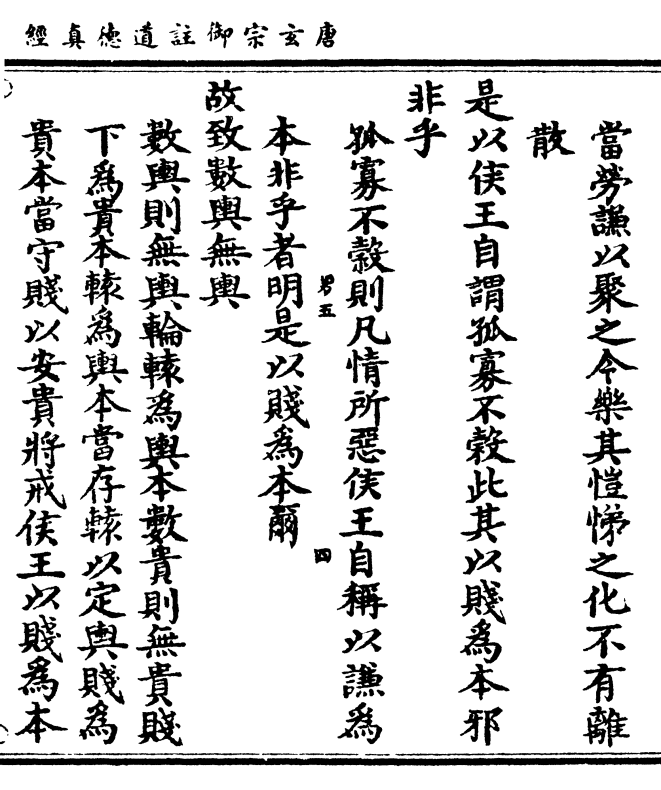 唐玄宗御註道德真經
當勞謙以聚之今樂其愷悌之化不有離
散
是以侯王自謂孤寡不穀此其以賤為本邪
非乎
孤寡不穀則凡情所惡侯王自稱以謙為
男五
四
本非乎者明是以賤為本爾
故致數輿無輿
數輿則無輿輪轅為輿本數貴則無貴賤
下為貴本轅為輿本當存轅以定輿賤為
貴本當守賤以安貴將戒侯王以賤為本